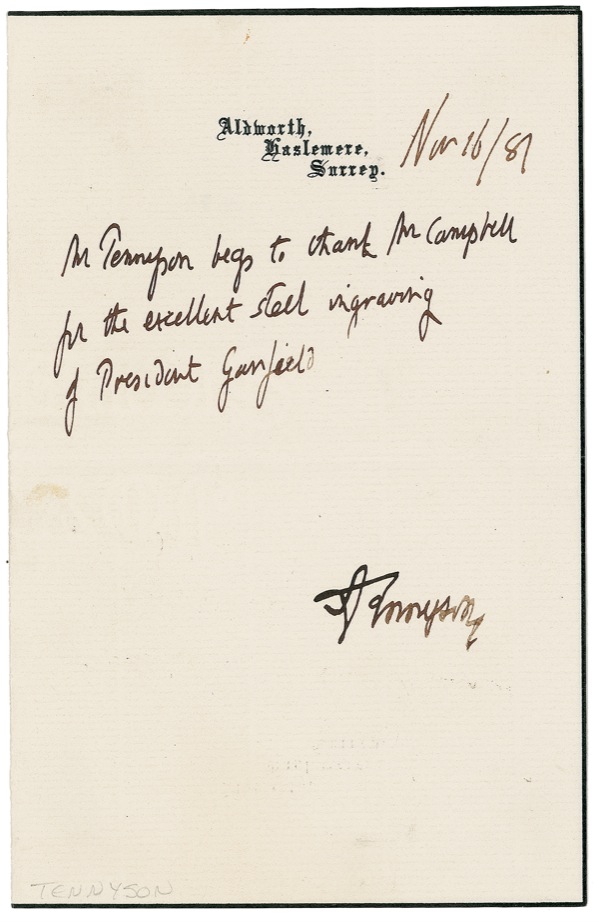 Aldworth,
Haslemere,
Surrey.
Nov 16/81
Mr Tennyson begs to thank Mr Campbell
for the excellent steel ingraving
of President Garfield
A Tennyson
TENNYSON